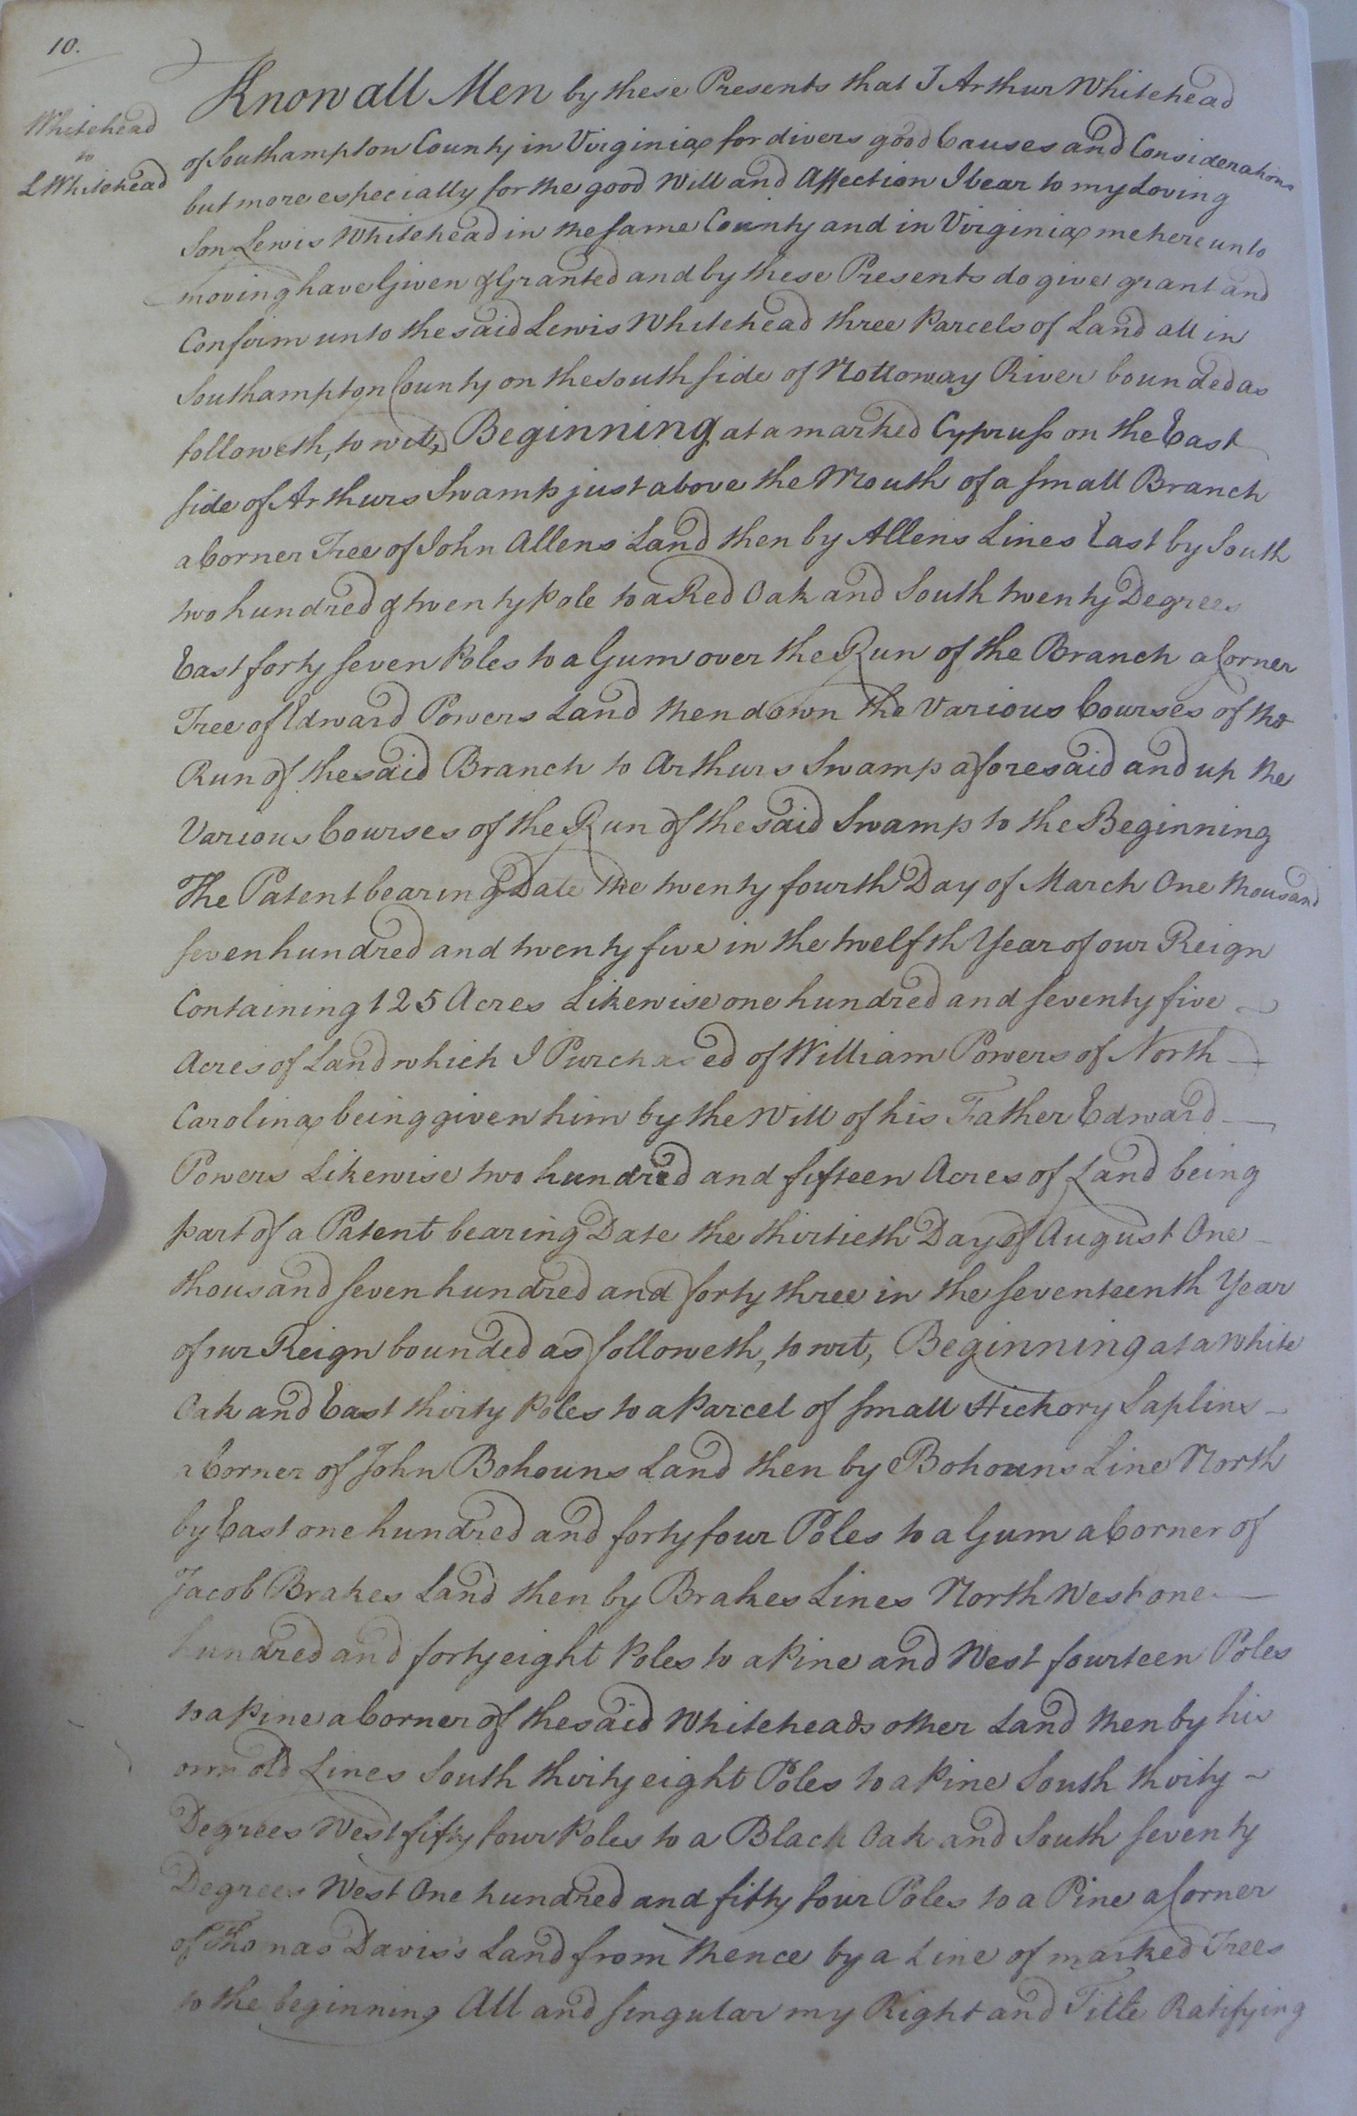 10.
Whitehead
to
L Whitehead
Know all Men by these Presents that I Arthur Whitehead
of Southampton County in Virginia for divers good Causes and Considerations
but more especially for the good Will and Affection I bear to my Loving
Son Lewis Whitehead in the same County and in Virginia me hereunto
moving have Given & Granted and by these Presents do give grant and
Confirm unto the said Lewis Whitehead three Parcels of Land all in
Southampton County on the South side of Nottoway River bounded as
followeth, to wit, Beginning at a marked Cypruss on the East
side of Arthurs Swamp just above the Mouth of a small Branch
a Corner Tree of John Allens Land then by Allens Lines East by South
two hundred & twenty Pole to a Red Oak and South twenty Degrees
East forty seven Poles to a Gum over the Run of the Branch a Corner
Tree of Edward Powers Land then down the Various Courses of the
Run of the said Branch to Arthurs Swamp aforesaid and up the
Various Courses of the Run of the said Swamp to the Beginning
The Patent bearing Date the twenty fourth Day of March One thousand
seven hundred and twenty five in the twelfth Year of our Reign
Containing 125 Acres Likewise one hundred and seventy five
Acres of Land which I Purchased of William Powers of North
Carolina being given him by the Will of his Father Edward
Powers Likewise two hundred and fifteen Acres of Land being
part of a Patent bearing Date the thirtieth Day of August One
thousand seven hundred and forty three in the seventeenth Year
of our Reign bounded as followeth, to wit, Beginning at a White
Oak and East thirty Poles to a Parcel of small Hickory Saplins
a Corner of John Bohouns Land then by Bohouns Line North
by East one hundred and forty four Poles to a Gum a Corner of
Jacob Brakes Land then by Brakes Lines North West one
hundred and forty eight Poles to a Pine and West fourteen Poles
to a Pine a Corner of the said Whiteheads other Land then by his
own old Lines South thirty eight Poles to a Pine South thirty
Degrees West fifty four Poles to a Black Oak and South seventy
Degrees West One hundred and fifty four Poles to a Pine a Corner
of Thomas Davis's Land from thence by a Line of marked Trees
to the beginning All and singular my Right and Title Ratifying